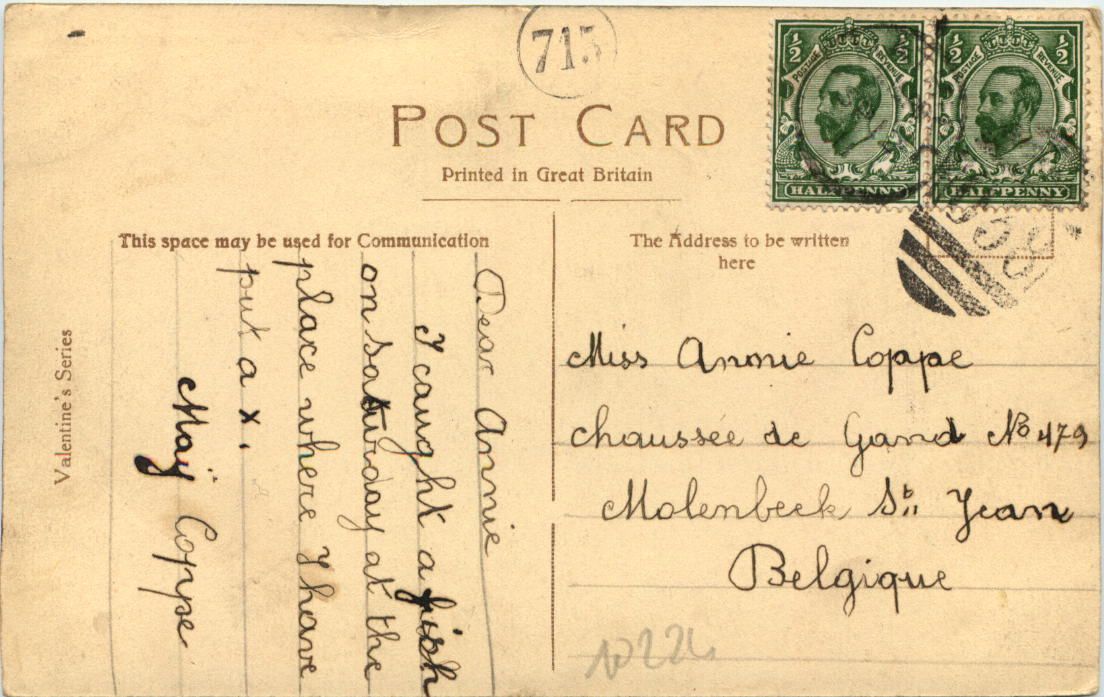 715
POST CARD
Printed in Great Britain
½ ½ ½ ½
POSTAGE REVENUE POSTAGE REVENUE
HALFPENNY HALFPENNY
This space may be used for Communication
The Address to be written
here
Valentine's Series
Dear Annie
I caught a fish
on saturday at the
place where I have
put a x.
Maij Coppe
Miss Annie Coppe
chaussée de Gand No 479
Molenbeek St Jean
Belgique